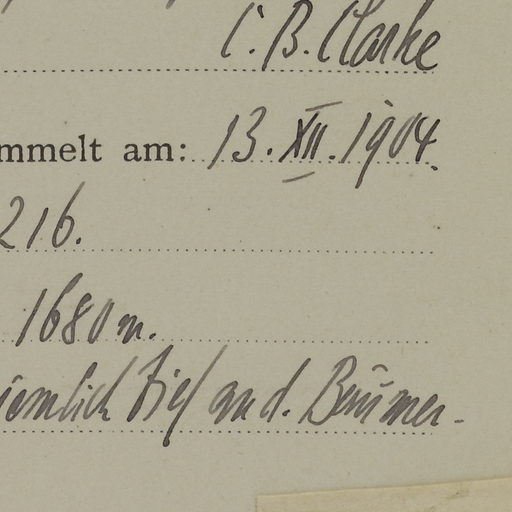 C. B. Clarke
mmelt am: 13. XII. 1904.
216.
1680 m.
iemlich tief an d. Bäumen